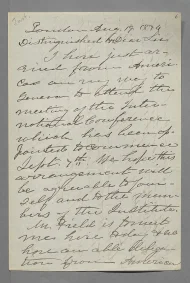 London Aug. 19. 1879
Distinguished & Dear Sir
I have just ar-
rived from Ameri-
ca on my way to
Geneva to attend the
meeting of the Inter-
national Conference
which has been ap-
pointed to commence
Sept. 7th. We hope this
arrangement will
be agreeable to your-
self and to the mem-
bers of the Institute.
Mr. Field is to meet
me here & to
able delega-
tion from America